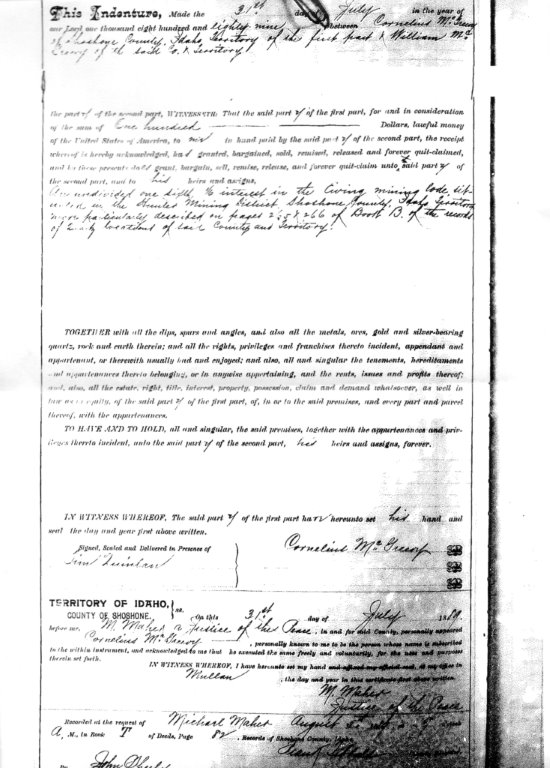 This Indenture, Made the 31st day of July in the year of
our Lord one thousand eight hundred and eighty nine between Cornelius
of Shoshone County, Idaho Territory of the first part & William Mc
of the said Co. & Territory
the party of the second part, WITNESSETH: That the said party of the first part, for and in consideration
of the sum of One hundred Dollars, lawful money
of the United States of America, to in hand paid by the said party of the second part, the receipt
whereof is hereby acknowledged, has granted, bargained, sold, remised, released and forever quit-claimed,
and by these presents does grant, bargain, sell, remise, release, and forever quit-claim unto said party of
the second part, and to his heirs and assigns,
An undivided one 1/6 interest in the mining lode sit-
uated in the Hunter Mining District Shoshone County, Idaho Territory
more particularly described on pages 266 of Book B. of the records
of locations of said County and Territory.
TOGETHER with all the dips, spurs and angles, and also all the metals, ores, gold and silver-bearing
quartz, rock and earth therein; and all the rights, privileges and franchises thereto incident, appendant and
appurtenant, or therewith usually had and enjoyed; and also, all and singular the tenements, hereditaments
and appurtenances thereto belonging, or in anywise appertaining, and the rents, issues and profits thereof;
and, also, all the estate, right, title, interest, property, possession, claim and demand whatsoever, as well in
law as in equity, of the said party of the first part, of, in or to the said premises, and every part and parcel
thereof, with the appurtenances.
TO HAVE AND TO HOLD, all and singular, the said premises, together with the appurtenances and privi-
leges thereto incident, unto the said party of the second part, his heirs and assigns, forever.
IN WITNESS WHEREOF, The said party of the first part have hereunto set his hand and
seal the day and year first above written.
Signed, Sealed and Delivered in Presence of
Cornelius
Jim Quinlan
TERRITORY OF IDAHO,
COUNTY OF SHOSHONE. ss. On this 31st day of July 1889.
before me, M. Maher a Justice of the Peace, in and for said County, personally appeared
Cornelius , personally known to me to be the person whose name is subscribed
to the within instrument, and acknowledged to me that he executed the same freely and voluntarily, for the uses and purposes
therein set forth.
IN WITNESS WHEREOF, I have hereunto set my hand and at my office in
Mullan , the day and year in this certificate first above written.
M. Maher
Justice of the Peace
Recorded at the request of Michael Maher August
A. M., in Book T of Deeds, Page 82, Records of Shoshone County, Idaho.
John